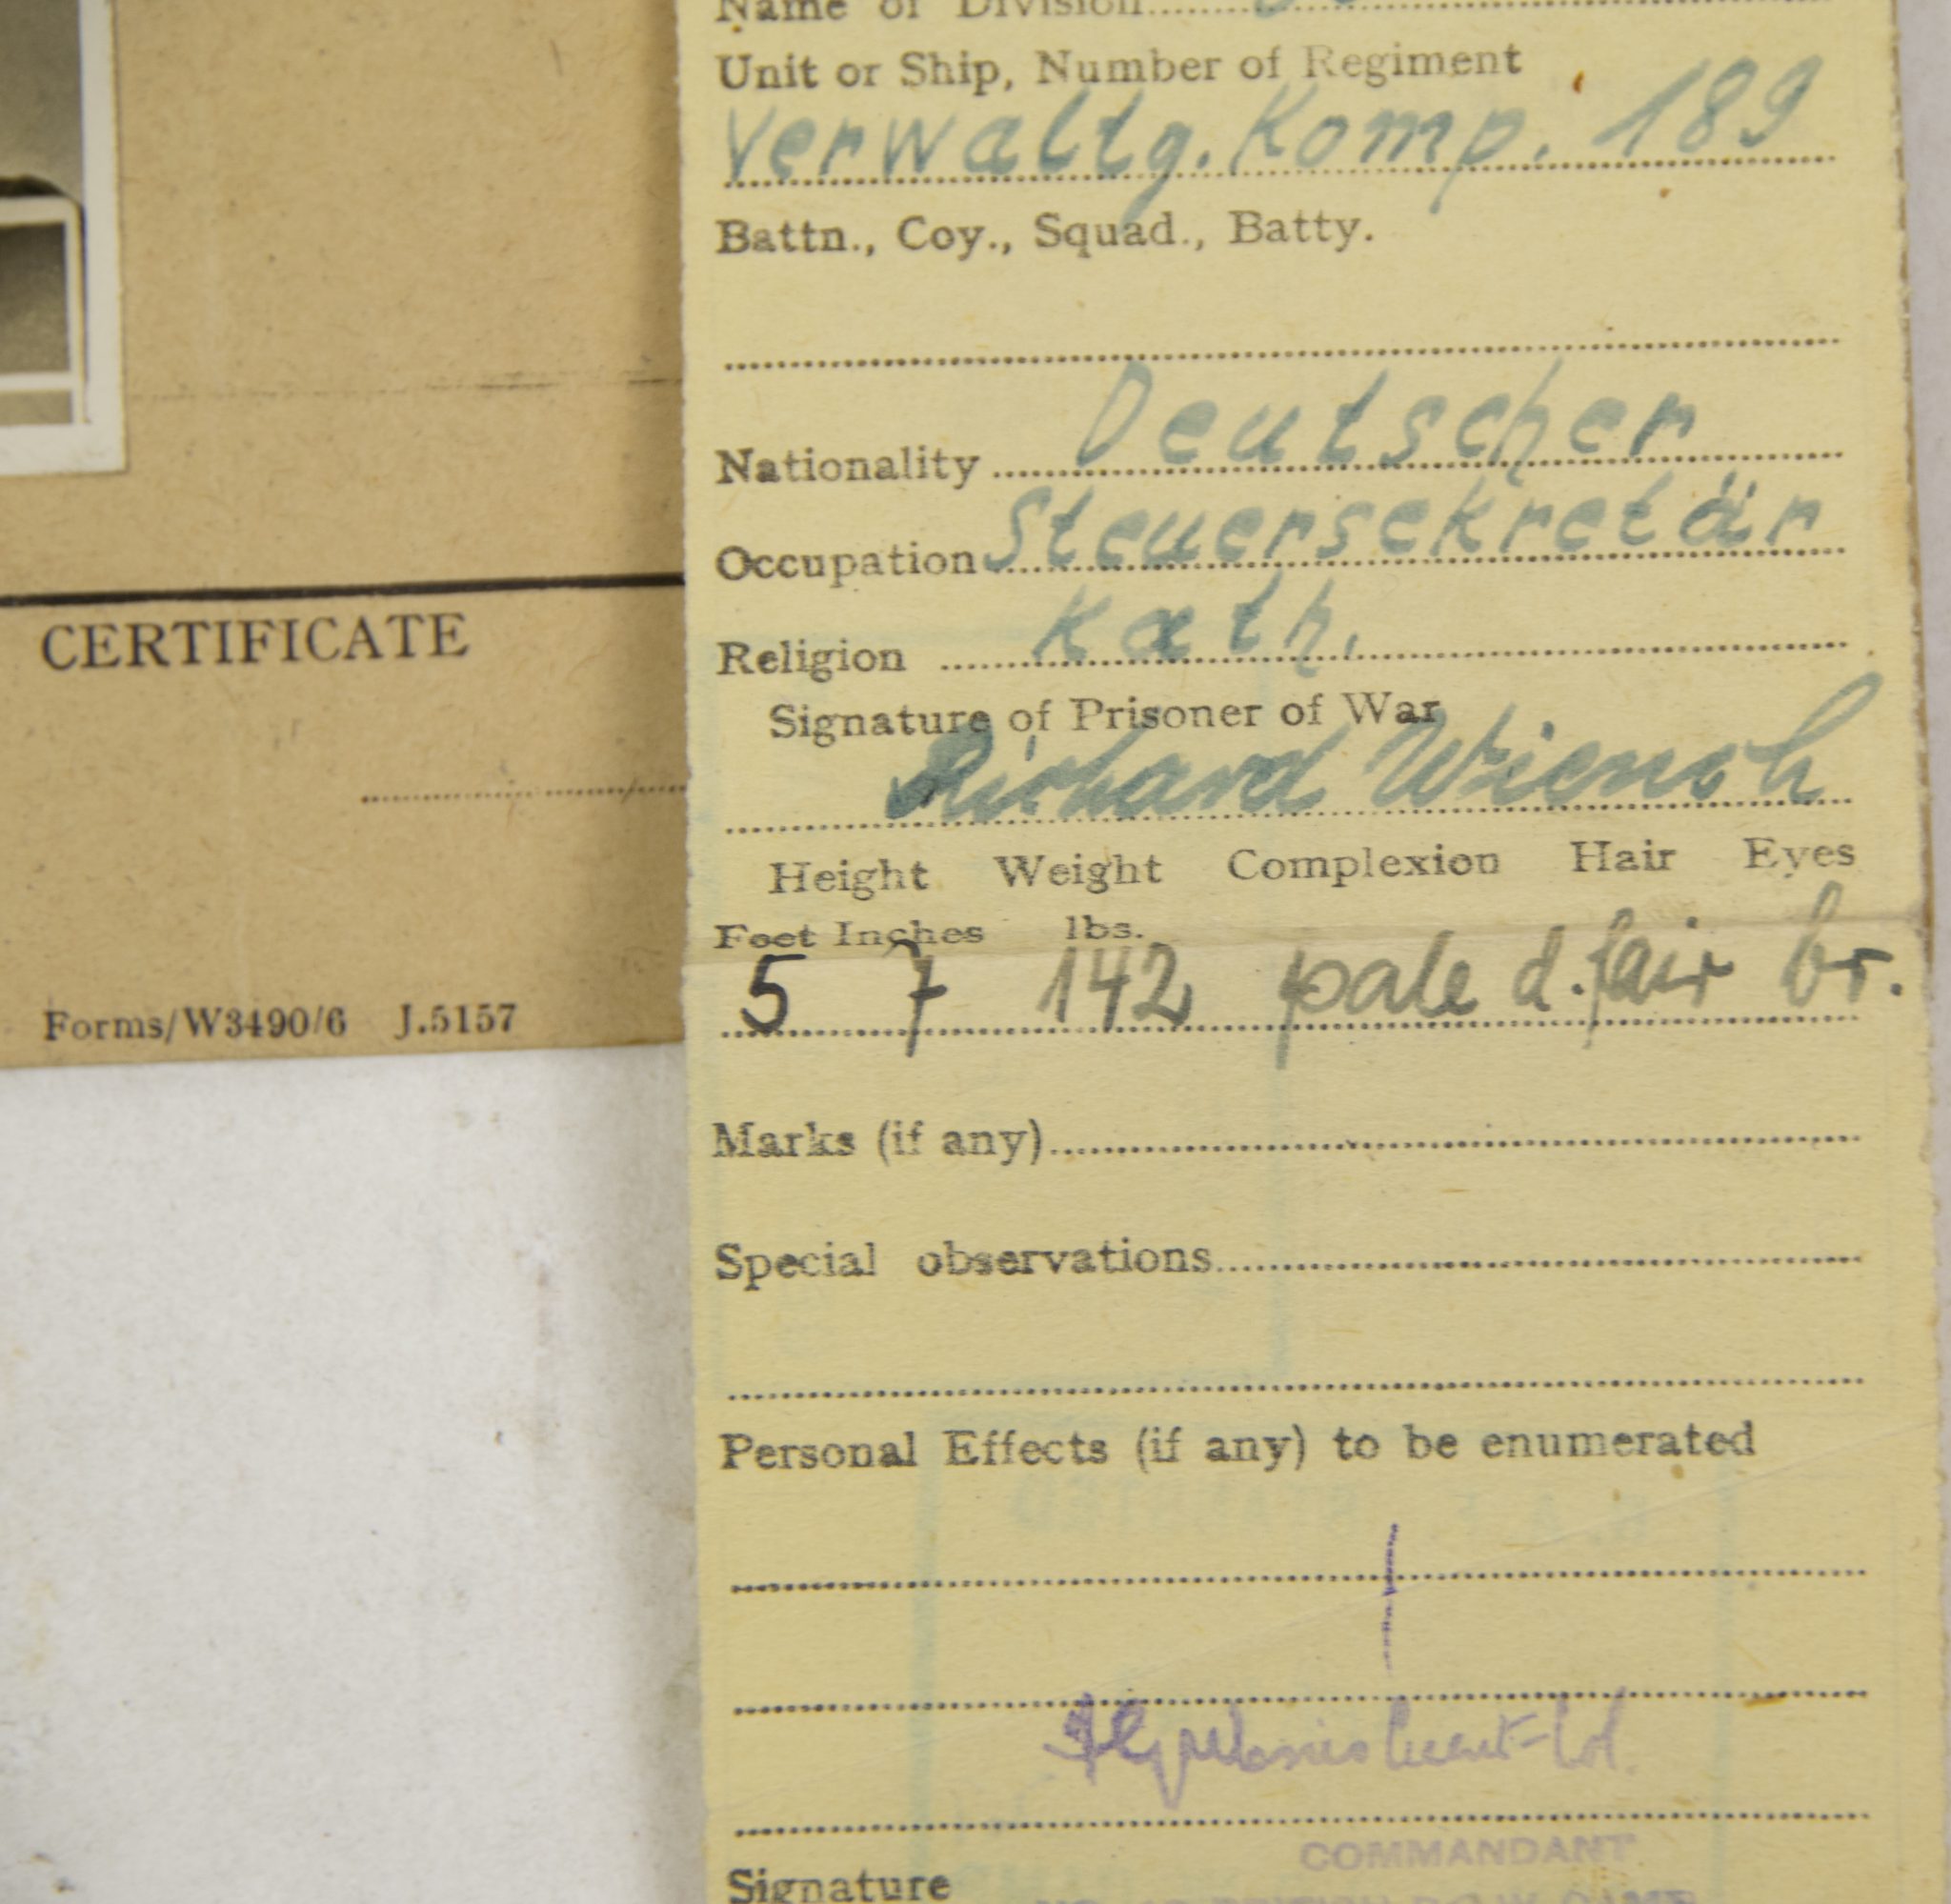 Name of Division
Unit or Ship, Number of Regiment
Verwaltg. Komp. 189
Battn., Coy., Squad., Batty.
Nationality Deutscher
Occupation Steuersekretär
Religion Kath.
Signature of Prisoner of War
Richard Wiensh
Height Weight Complexion Hair Eyes
Feet Inches lbs.
5 7 142 pale d. fair br.
Marks (if any)
Special observations
Personal Effects (if any) to be enumerated
COMMANDANT
Signature
CERTIFICATE
Forms/W3490/6 J.5157